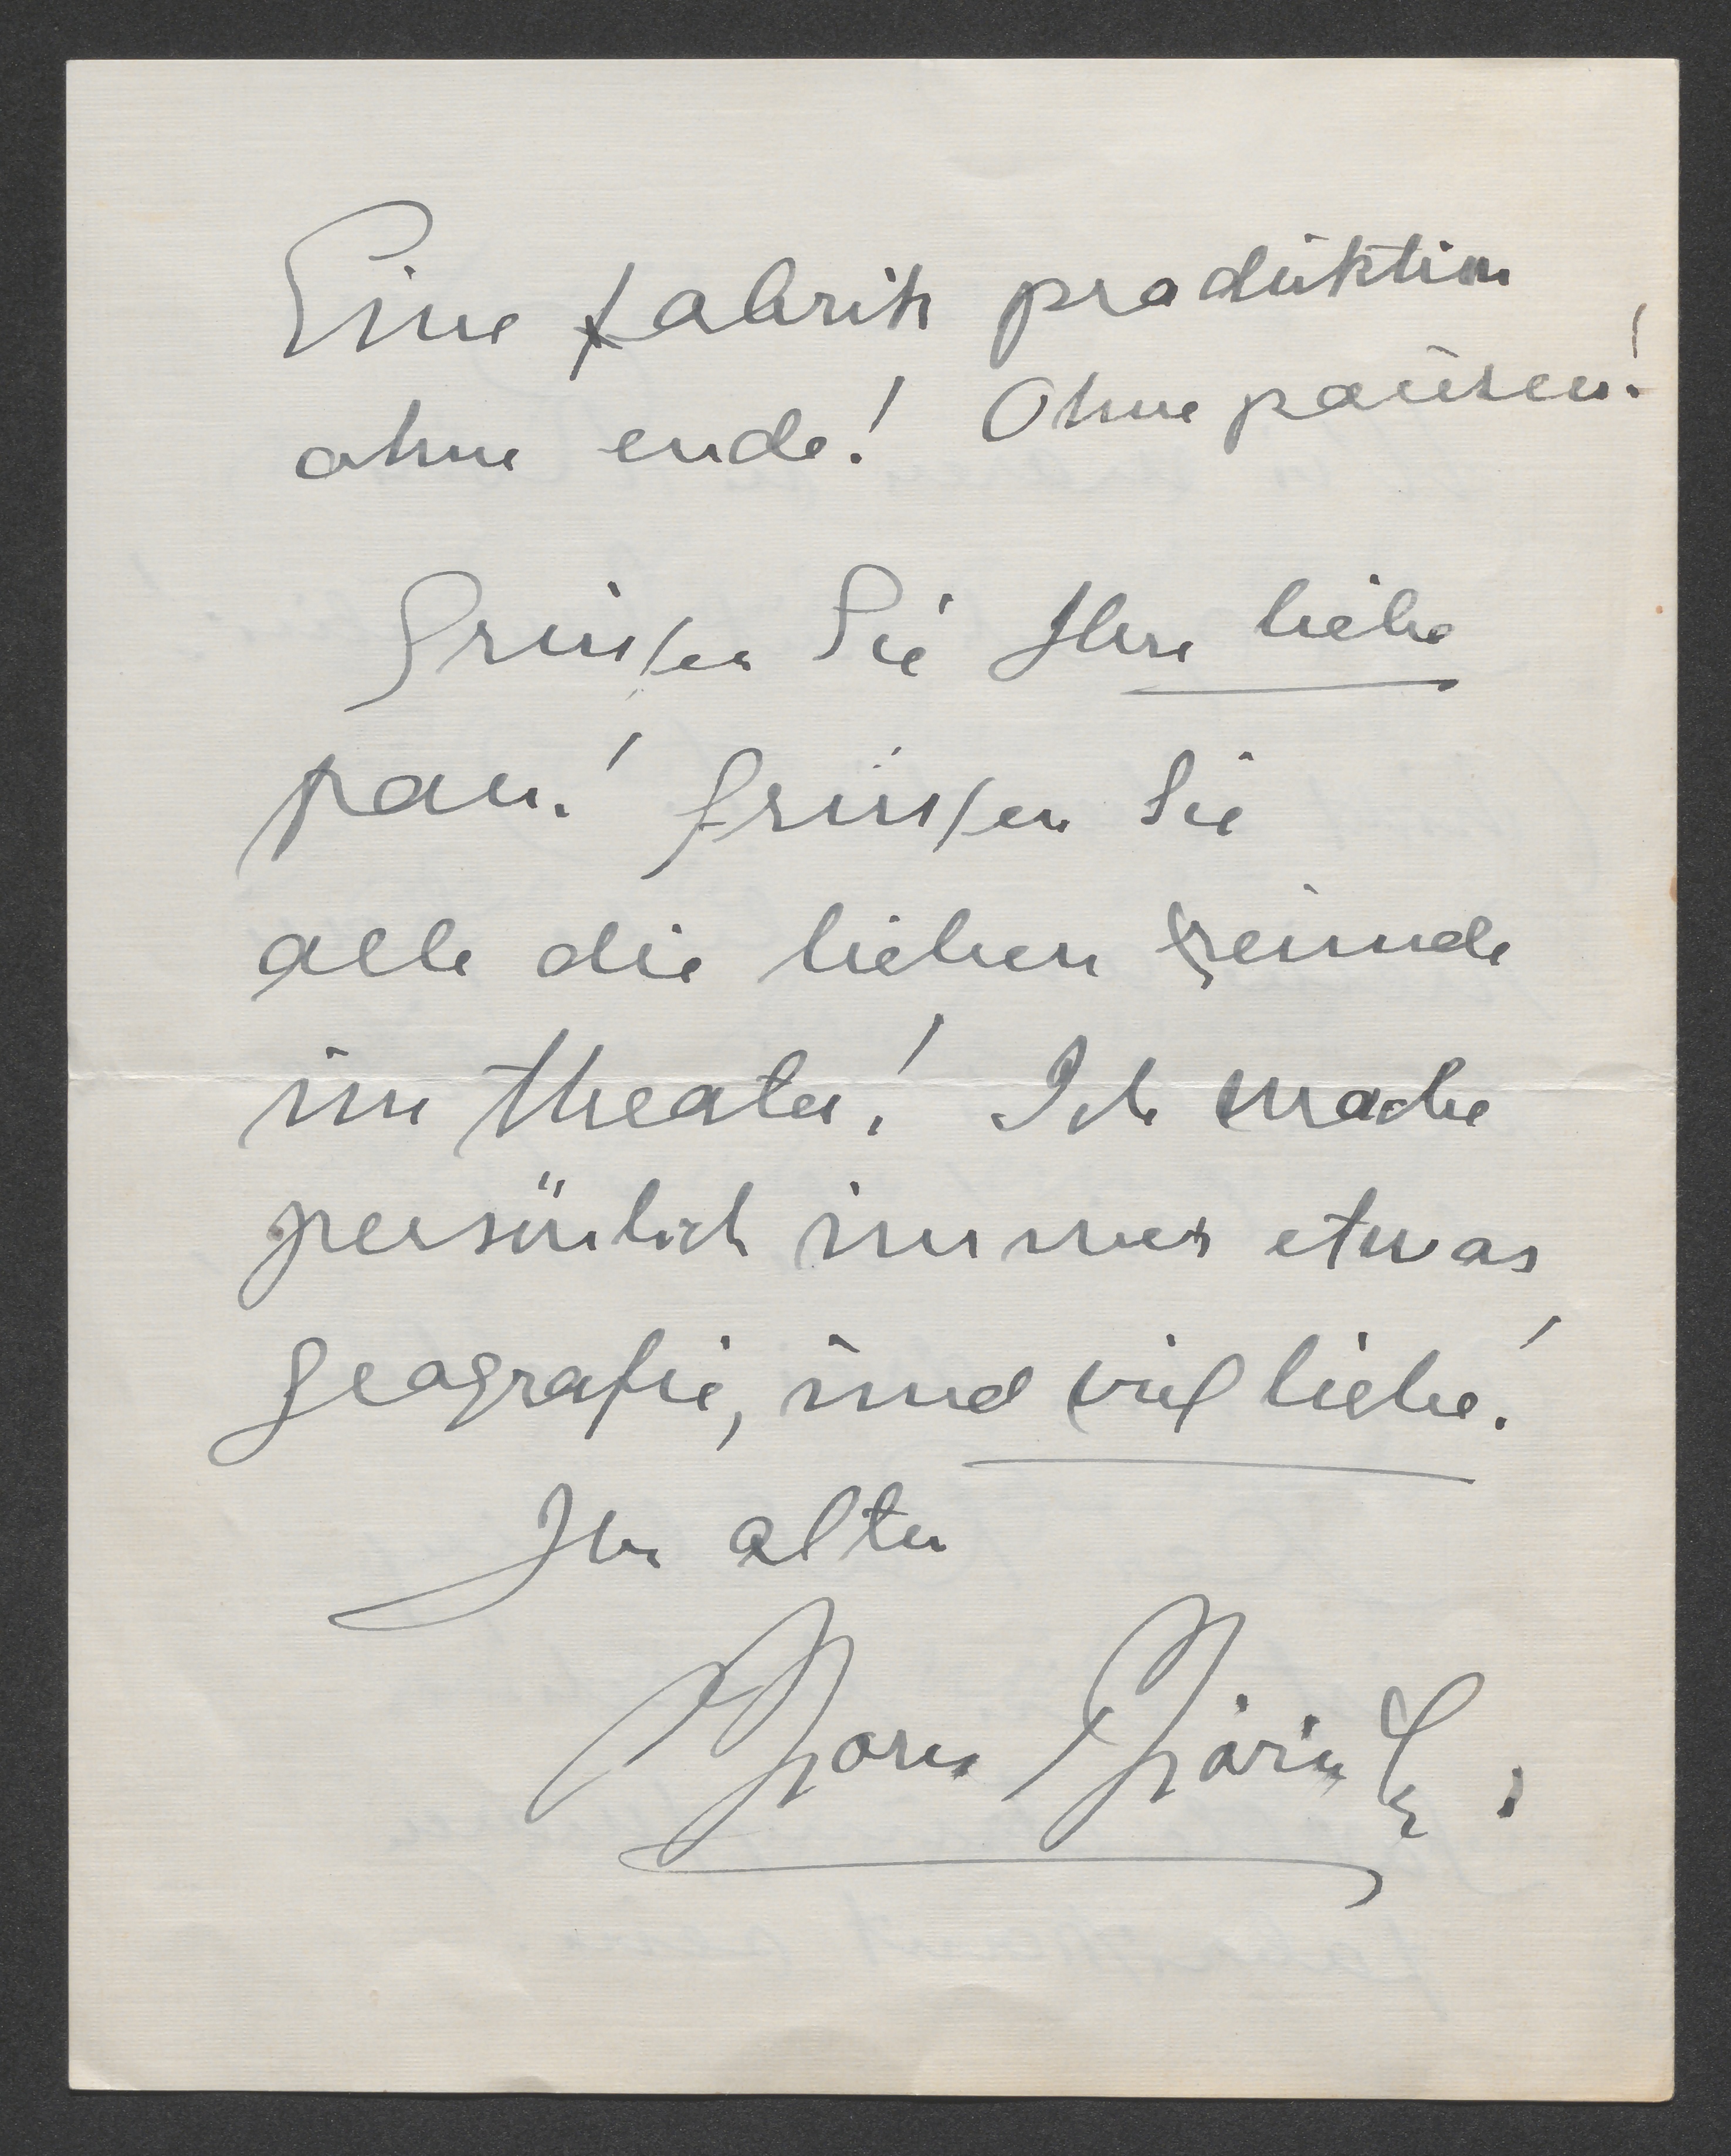 Eine fabrik produktion
ohne ende! Ohne pausen!
Grüssen Sie Ihre liebe
frau! Grüssen Sie
alle die lieben freunde
im theater! Ich mache
persönlich immer etwas
geografie, und viel liebe!
Ihr alter